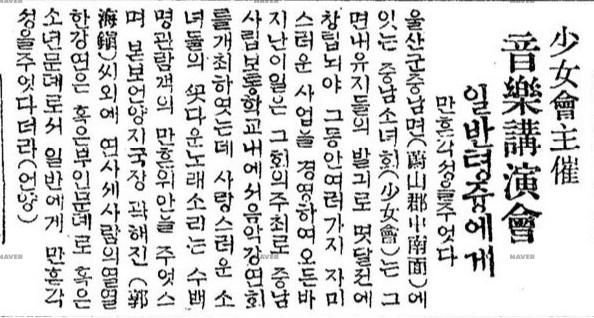 少女會主催
音樂講演會
일반텽즁에게
만흔각성을주엇다
울산군중남면(蔚山郡中南面)에
잇는 중남소녀회(少女會)는 그
면내유지들의 발긔로 몃달전에
창립되야 그동안여러가지 자미
스러운 사업을 경영하여오든바
지난이일은 그회의주최로 중남
사립보통학교내에서음악강연회
를개최하엿는데 사랑스러운 소
녀들의 꼿다운노래소리는 수백
명관람객의 만흔위안을 주엇스
며 본보언양지국장 곽해진(郭
海鎭)씨외에 연사세사람의열렬
한강연은 혹은부인문뎨로 혹은
소년문뎨로서 일반에게 만흔각
성을주엇다더라(언양)
NAVER